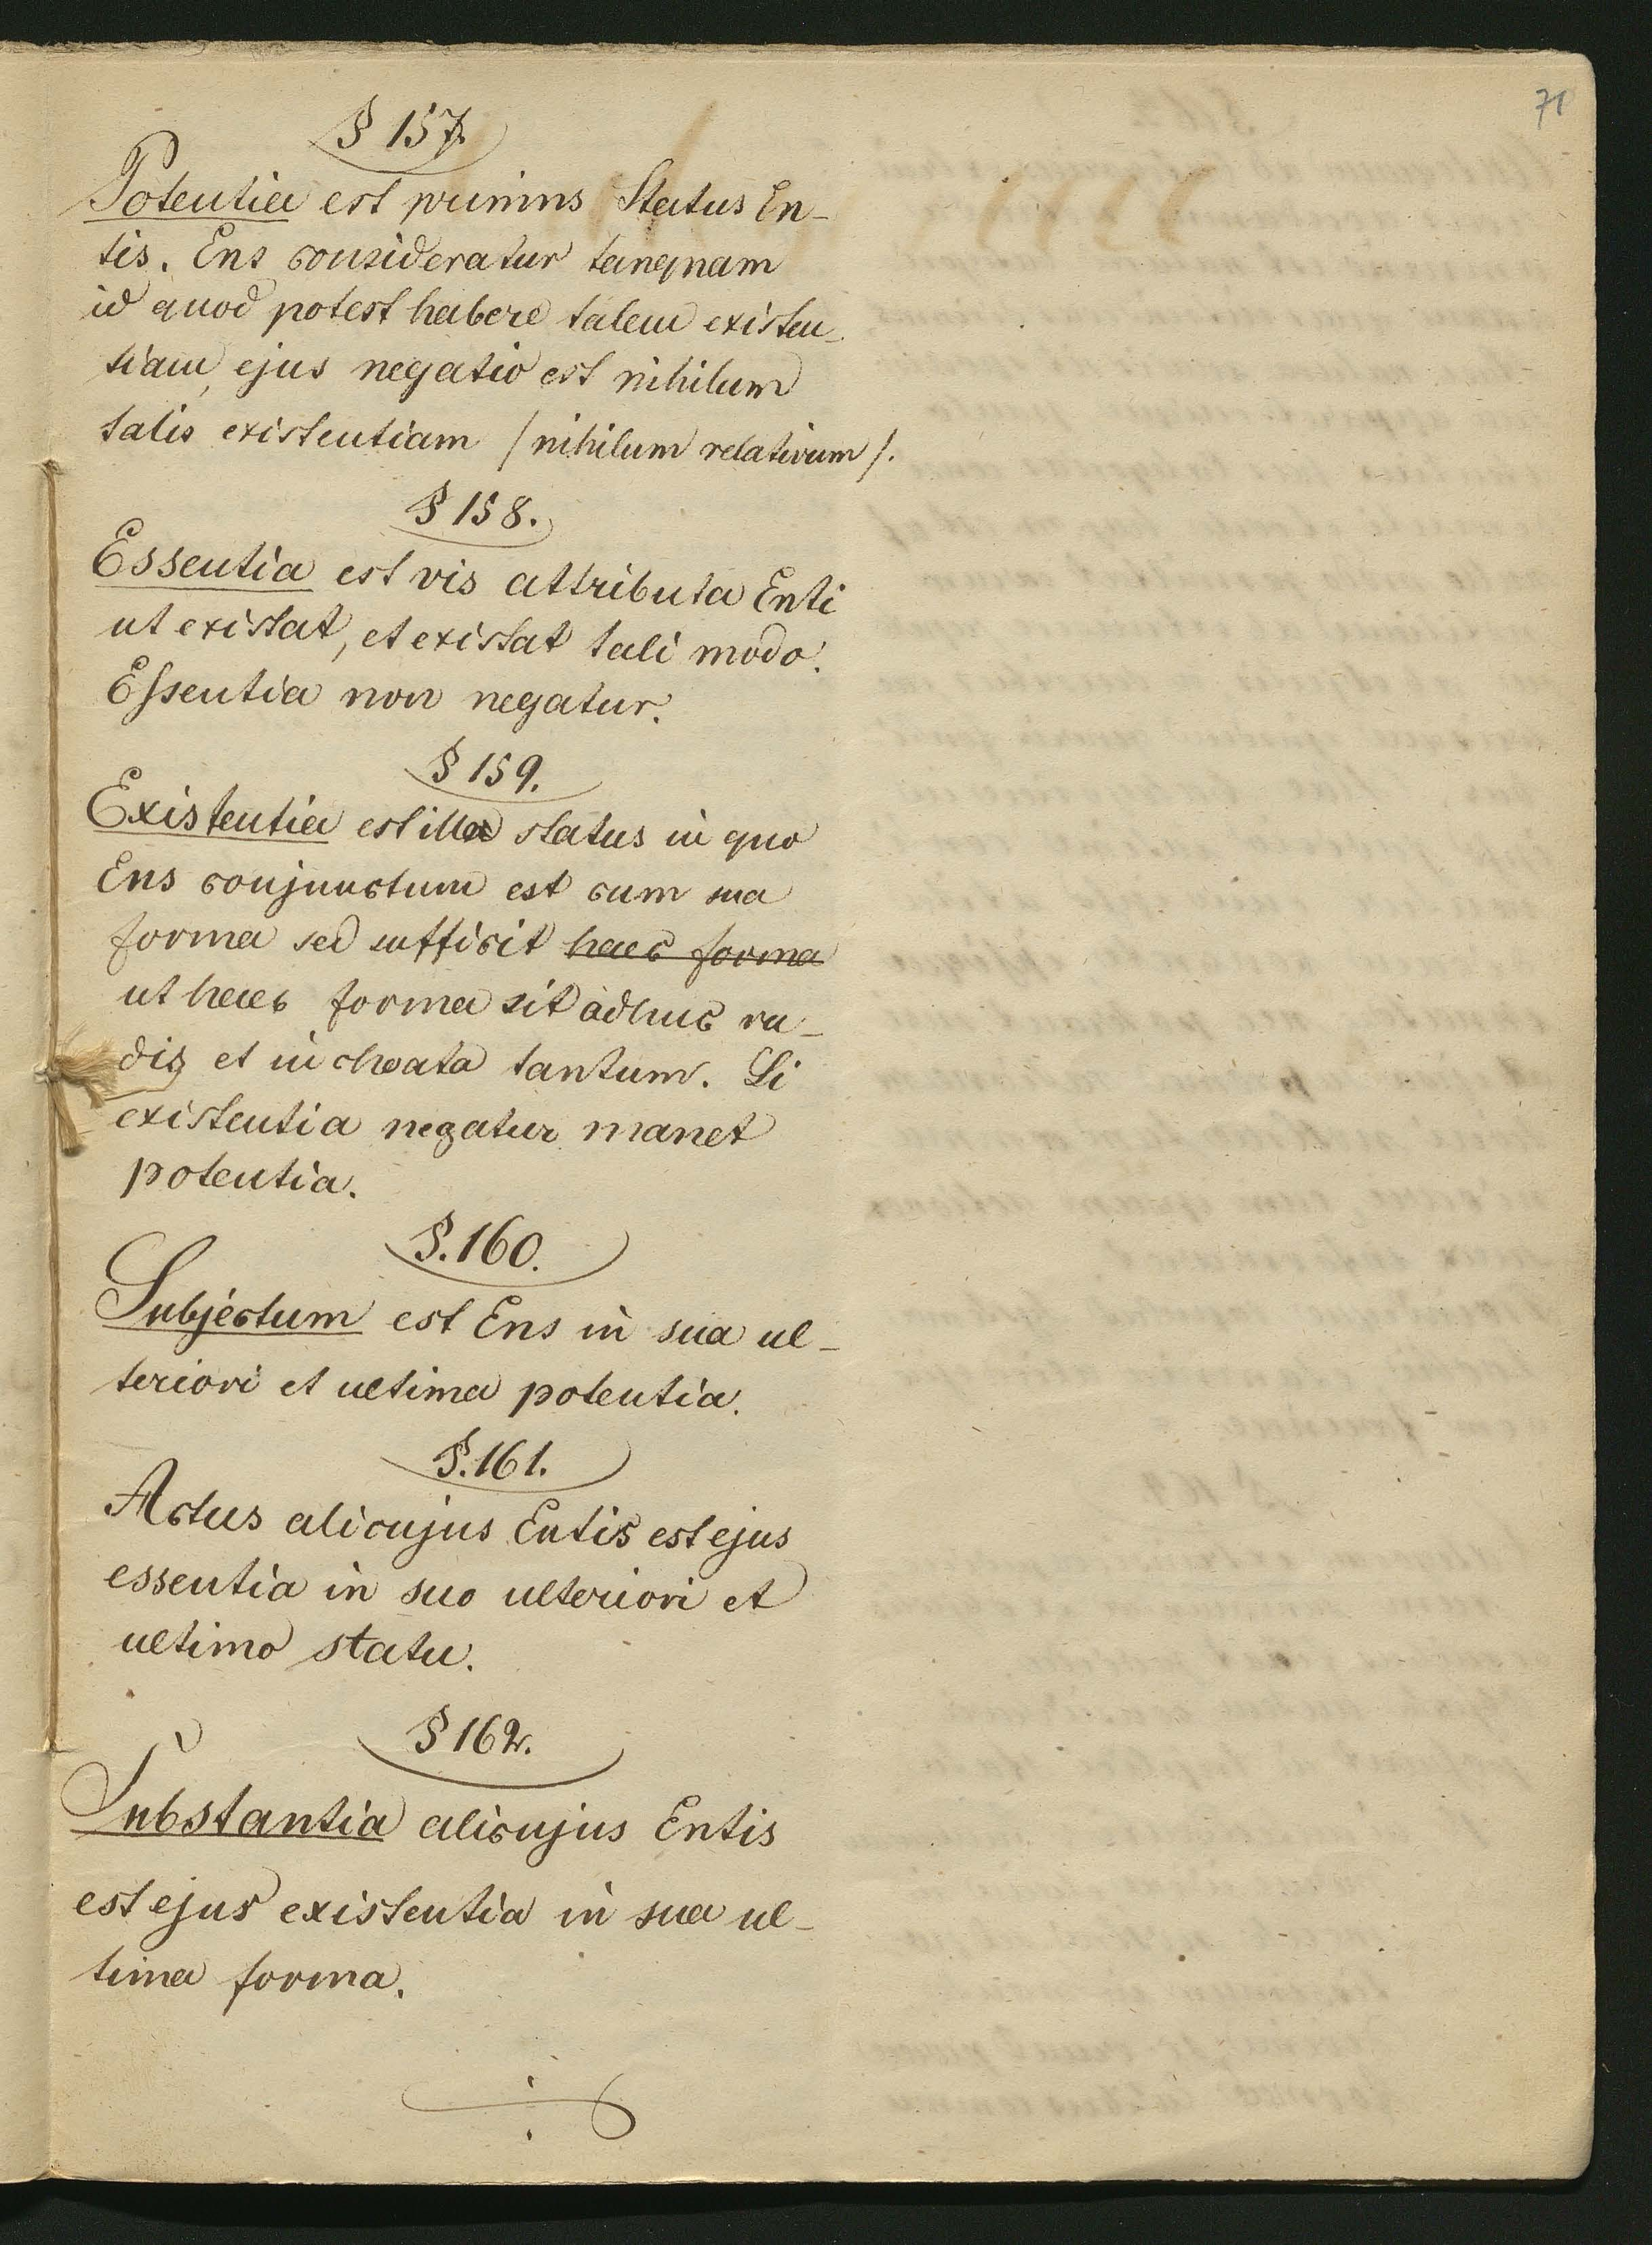 71
§ 157.
Potentia est primus Status En-
tis. Ens consideratur tanquam
id quod potest habere talem existen-
tiam, ejus negatio est nihilum
talis existentiam /nihilum relativum/.
§ 158.
Essentia est vis attributa Enti
ut existat, et existat tali modo.
Essentia non negatur.
§ 159.
Existentia est illa status in quo
Ens conjunctum est cum sua
forma sed sufficit haec forma
ut haec forma sit adhuc ru-
dis et inchoata tantum. Si
existentia negatur manet
potentia.
§. 160.
Subjectum est Ens in sua ul-
teriori et ultima potentia.
§. 161.
Actus alicujus Entis est ejus
essentia in suo ulteriori et
ultimo statu.
§ 162.
Substantia alicujus Entis
est ejus existentia in sua ul-
tima forma.